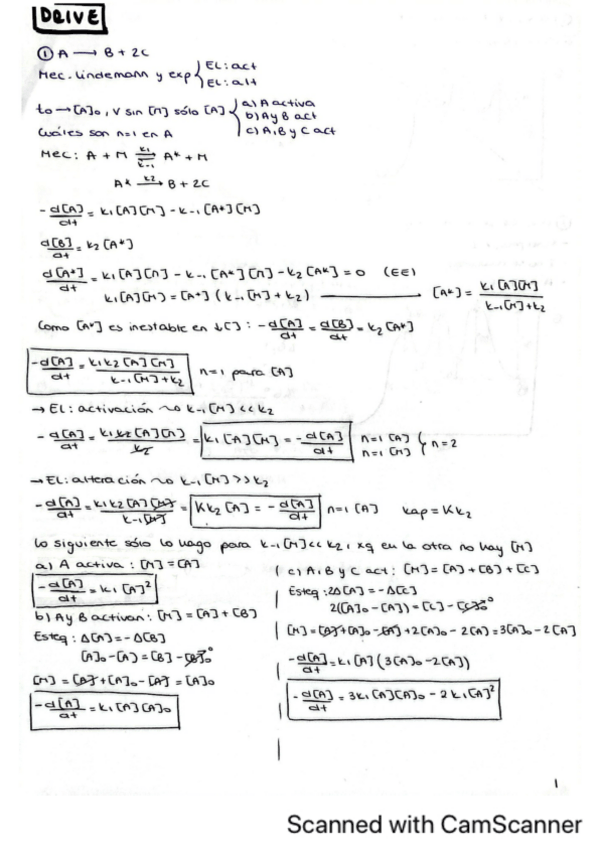 DRIVE
① A → B + 2C
Mec. Lindemann y exp { EL: act
EL: alt
t₀ → [A]₀, v sin [M] sólo [A] { a) A activa
b) A y B act
c) A, B y C act
Cuáles son n=1 en A
Mec: A + M ⇌ A* + M (k₁, k₋₁)
A* →(k₂) B + 2C
-d[A]/dt = k₁[A][M] - k₋₁[A*][M]
d[B]/dt = k₂[A*]
d[A*]/dt = k₁[A][M] - k₋₁[A*][M] - k₂[A*] = 0 (EE)
k₁[A][M] = [A*] (k₋₁[M] + k₂) ⟶ [A*] = k₁[A][M]/k₋₁[M]+k₂
Como [A*] es inestable en ↓[ ] : -d[A]/dt = d[B]/dt = k₂[A*]
-d[A]/dt = k₁k₂[A][M]/k₋₁[M]+k₂ n=1 para [A]
→ EL: activación ⤳ k₋₁[M] << k₂
-d[A]/dt = k₁k₂[A][M]/k₂ = k₁[A][M] = -d[A]/dt n=1 [A] n=1 [M] } n=2
→ EL: alteración ⤳ k₋₁[M] >> k₂
-d[A]/dt = k₁k₂[A][M]/k₋₁[M] = Kk₂[A] = -d[A]/dt n=1 [A] kap = Kk₂
Lo siguiente sólo lo hago para k₋₁[M] << k₂, xq en la otra no hay [M]
a) A activa : [M] = [A]
-d[A]/dt = k₁[A]²
b) A y B activan: [M] = [A] + [B]
Esteq: Δ[A] = -Δ[B]
[A]₀ - [A] = [B] - [B]₀⁰
[M] = [A] + [A]₀ - [A] = [A]₀
-d[A]/dt = k₁[A][A]₀
c) A, B y C act: [M] = [A] + [B] + [C]
Esteq: 2Δ[A] = -Δ[C]
2([A]₀ - [A]) = [C] - [C]₀⁰
[M] = [A] + [A]₀ - [A] + 2[A]₀ - 2[A] = 3[A]₀ - 2[A]
-d[A]/dt = k₁[A] (3[A]₀ - 2[A])
-d[A]/dt = 3k₁[A][A]₀ - 2k₁[A]²
1
Scanned with CamScanner